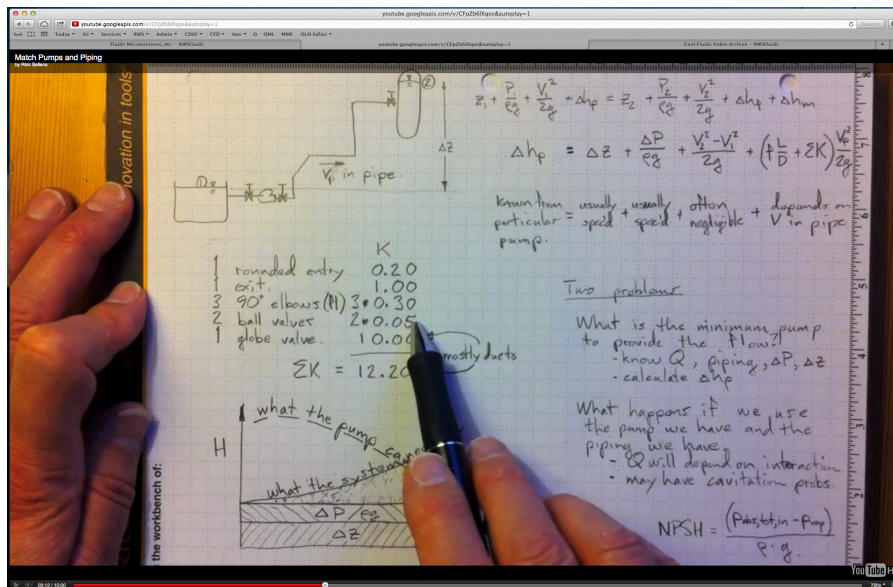 youtube.googleapis.com/v/CFpZb6lXqos&autoplay=1
youtube.googleapis.com/v/CFpZb6lXqos&autoplay=1
Reader
Today SU Services RWS Admin CDIO CFD Nas Q QNL MME OLD Safari
Fluids Microlectures, etc. - RWSFluids
youtube.googleapis.com/v/CFpZb6lXqos&autoplay=1
Cool Fluids Video Archive - RWSFluids
Match Pumps and Piping
by Rick Sellens
novation in tools
the workbench of:
②
ΔZ
V_p in pipe.
z₁ + P₁/ρg + V₁²/2g + Δh_p = z₂ + P₂/ρg + V₂²/2g + Δh_f + Δh_m
Δh_p = ΔZ + ΔP/ρg + (V₂²-V₁²)/2g + (f L/D + ΣK) V_p²/2g
known from particular pump. = usually spec'd + usually spec'd + often negligible + depends on V in pipe
K
1 rounded entry 0.20
1 exit. 1.00
3 90° elbows (fl) 3*0.30
2 ball valves 2*0.05
1 globe valve. 10.00
mostly due to
ΣK = 12.20
Two problems
What is the minimum pump
to provide the flow?
- know Q, piping, ΔP, ΔZ
- calculate Δh_p
What happens if we use
the pump we have and the
piping we have.
- Q will depend on interaction
- may have cavitation probs.
NPSH = (P_abs,tot,in - P_vap) / ρ·g.
H
what the pump
what the system
ΔP/ρg
ΔZ
YouTube
03:12 / 10:00
720p